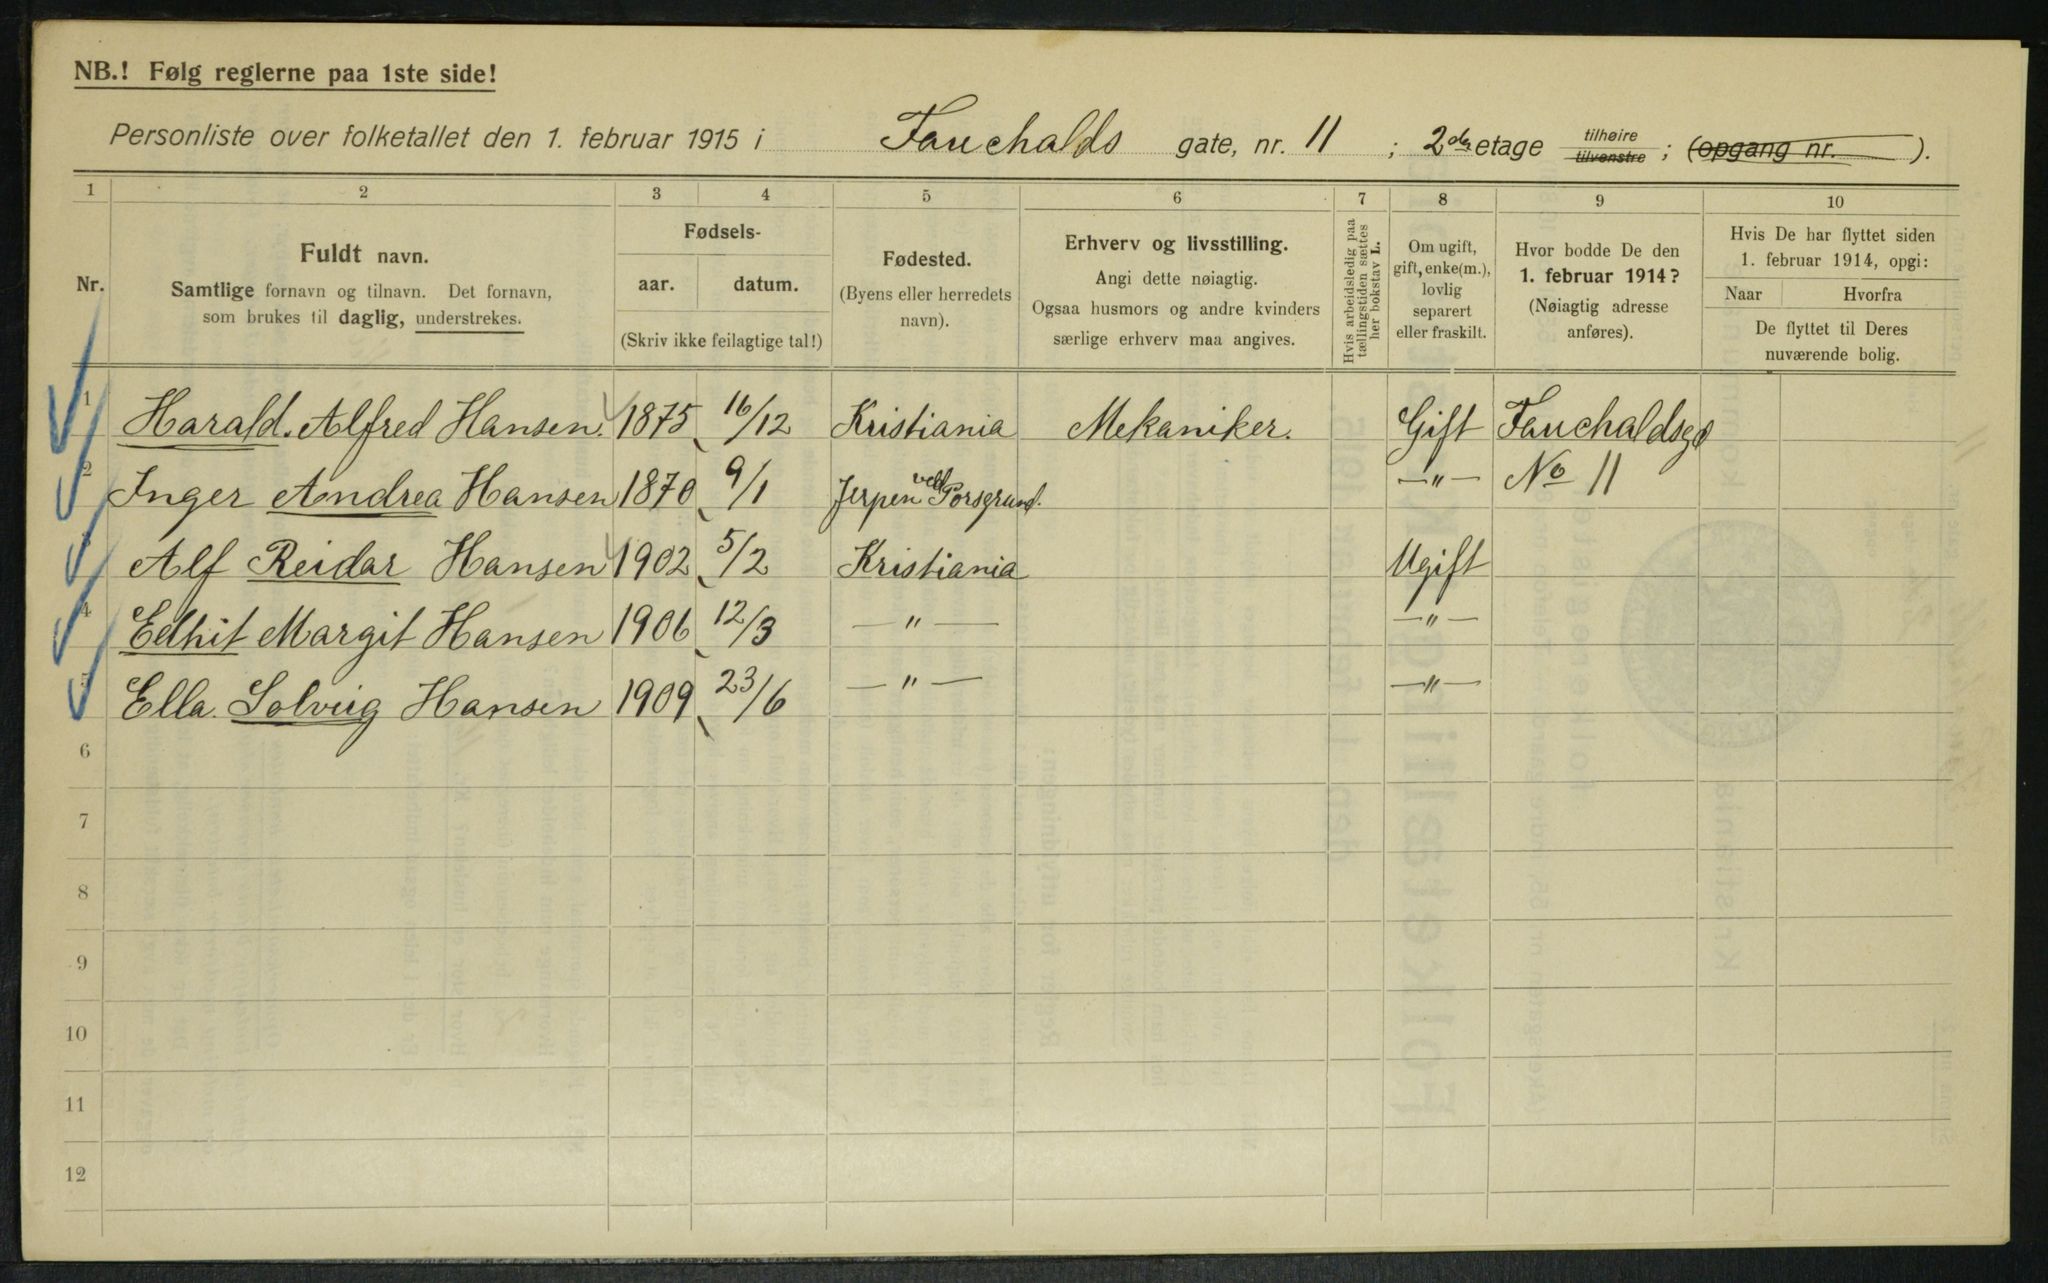 NB.! Følg reglerne paa 1ste side!
Personliste over folketallet den 1. februar 1915 i Fauchalds gate, nr. 11 ; 2den etage tilhøire tilvenstre ; (opgang nr. ).
1 2 3 4 5 6 7 8 9 10
Nr.
Fuldt navn.
Samtlige fornavn og tilnavn. Det fornavn,
som brukes til daglig, understrekes.
Fødsels-
aar. datum.
(Skriv ikke feilagtige tal!)
Fødested.
(Byens eller herredets
navn).
Erhverv og livsstilling.
Angi dette nøiagtig.
Ogsaa husmors og andre kvinders
særlige erhverv maa angives.
Hvis arbeidsledig paa
tællingstiden sættes
her bokstav L.
Om ugift,
gift, enke(m.),
lovlig
separert
eller fraskilt.
Hvor bodde De den
1. februar 1914?
(Nøiagtig adresse
anføres).
Hvis De har flyttet siden
1. februar 1914, opgi:
Naar Hvorfra
De flyttet til Deres
nuværende bolig.
1 Harald. Alfred Hansen. 1875 16/12 Kristiania Mekaniker. Gift Fauchaldsgd
2 Inger Andrea Hansen 1870 9/1 Jerpen ved Porsgrund. —"— No 11
3 Alf Reidar Hansen 1902 5/2 Kristiania Ugift
4 Edhit Margit Hansen 1906 12/3 —"— —"—
5 Ella. Solveig Hansen 1909 23/6 —"— —"—
6
7
8
9
10
11
12